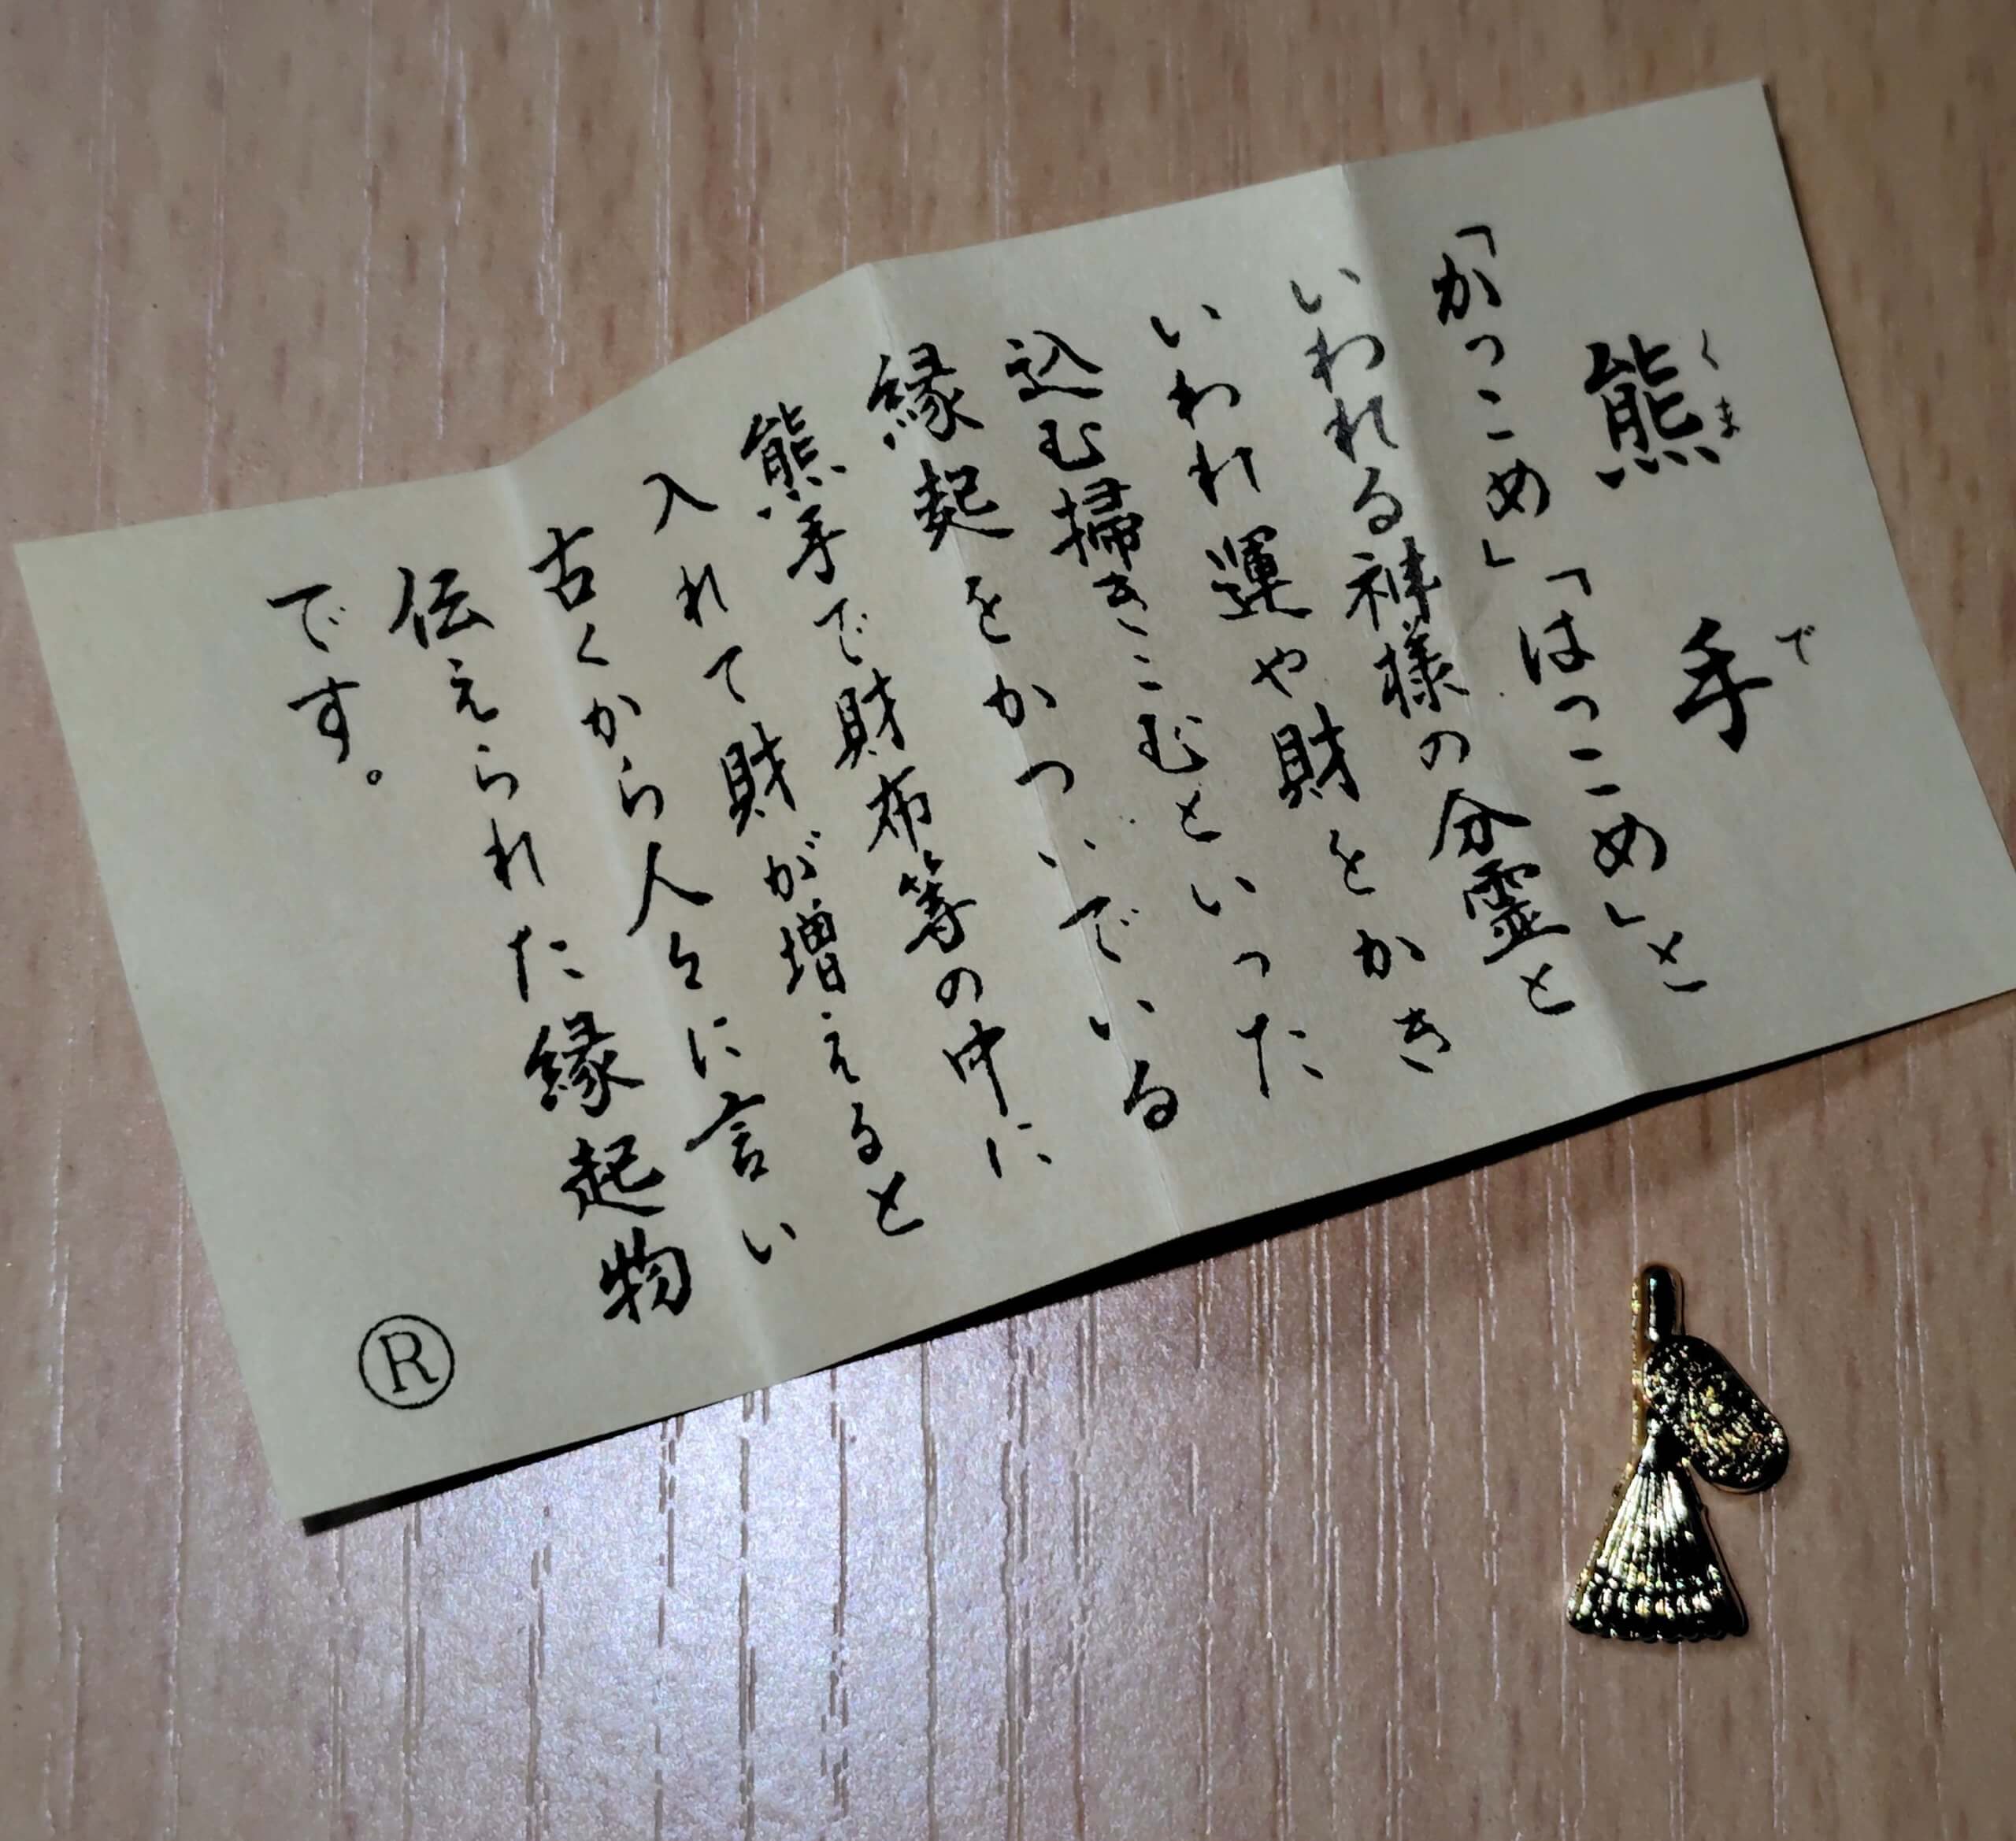 熊手
くまで
「かっこめ」「はっこめ」と
いわれる神様の分霊と
いわれ運や財をかき
込む掃きこむといった
縁起をかついでいる
熊手で財布等の中に
入れて財が増えると
古くから人々に言い
伝えられた縁起物
です。
Ⓡ